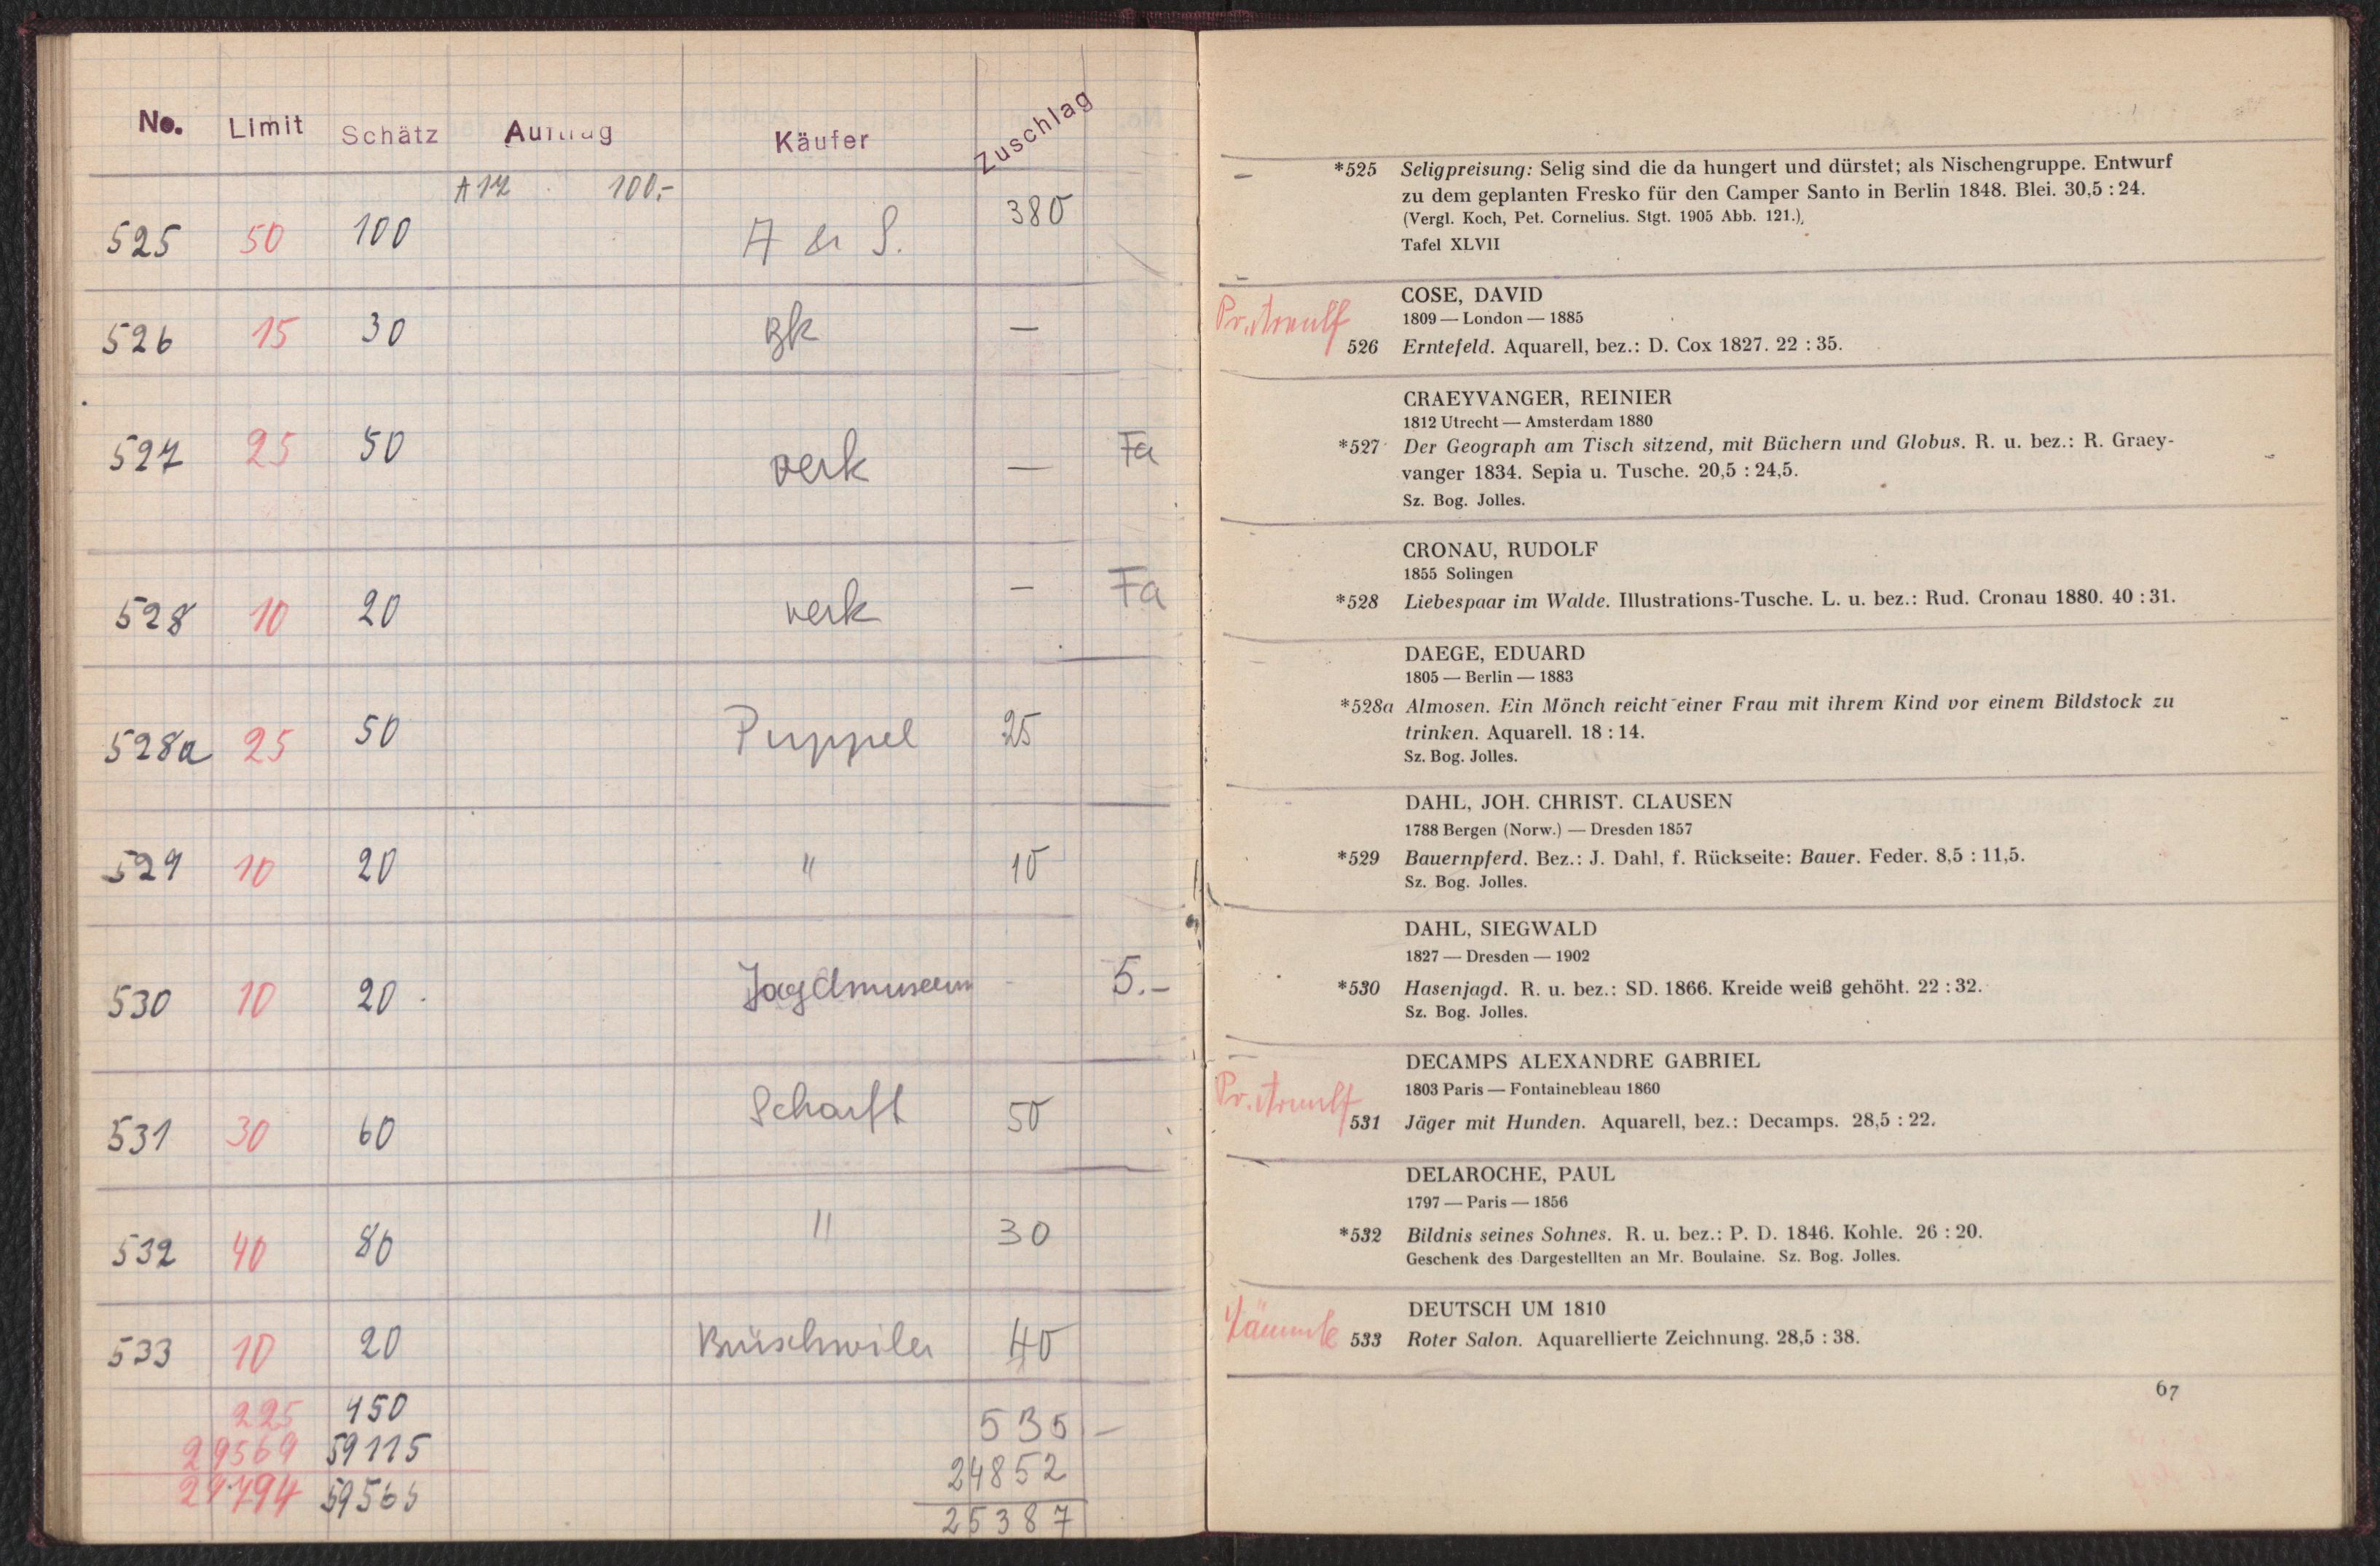 No. Limit Schätz Auftrag Käufer Zuschlag
A 17 100,-
525 50 100 A & S. 380
526 15 30 Bk —
527 25 50 verk — Fa
528 10 20 verk — Fa
528a 25 50 Puppel 25
529 10 20 " 10
530 10 20 Jagdmuseum - 5.-
531 30 60 Scharff 50
532 40 80 " 30
533 10 20 Brüschwiler 40
225 450 535 —
29569 59115 24852
29794 59565 25387
*525 Seligpreisung: Selig sind die da hungert und dürstet; als Nischengruppe. Entwurf
zu dem geplanten Fresko für den Camper Santo in Berlin 1848. Blei. 30,5 : 24.
(Vergl. Koch, Pet. Cornelius. Stgt. 1905 Abb. 121.),
Tafel XLVII
COSE, DAVID
Pr. Arnulf
1809 — London — 1885
526 Erntefeld. Aquarell, bez.: D. Cox 1827. 22 : 35.
CRAEYVANGER, REINIER
1812 Utrecht — Amsterdam 1880
*527 Der Geograph am Tisch sitzend, mit Büchern und Globus. R. u. bez.: R. Graey-
vanger 1834. Sepia u. Tusche. 20,5 : 24,5.
Sz. Bog. Jolles.
CRONAU, RUDOLF
1855 Solingen
*528 Liebespaar im Walde. Illustrations-Tusche. L. u. bez.: Rud. Cronau 1880. 40 : 31.
DAEGE, EDUARD
1805 — Berlin — 1883
*528a Almosen. Ein Mönch reicht einer Frau mit ihrem Kind vor einem Bildstock zu
trinken. Aquarell. 18 : 14.
Sz. Bog. Jolles.
DAHL, JOH. CHRIST. CLAUSEN
1788 Bergen (Norw.) — Dresden 1857
*529 Bauernpferd. Bez.: J. Dahl, f. Rückseite: Bauer. Feder. 8,5 : 11,5.
Sz. Bog. Jolles.
DAHL, SIEGWALD
1827 — Dresden — 1902
*530 Hasenjagd. R. u. bez.: SD. 1866. Kreide weiß gehöht. 22 : 32.
Sz. Bog. Jolles.
DECAMPS ALEXANDRE GABRIEL
Pr. Arnulf
1803 Paris — Fontainebleau 1860
531 Jäger mit Hunden. Aquarell, bez.: Decamps. 28,5 : 22.
DELAROCHE, PAUL
1797 — Paris — 1856
*532 Bildnis seines Sohnes. R. u. bez.: P. D. 1846. Kohle. 26 : 20.
Geschenk des Dargestellten an Mr. Boulaine. Sz. Bog. Jolles.
DEUTSCH UM 1810
533 Roter Salon. Aquarellierte Zeichnung. 28,5 : 38.
67